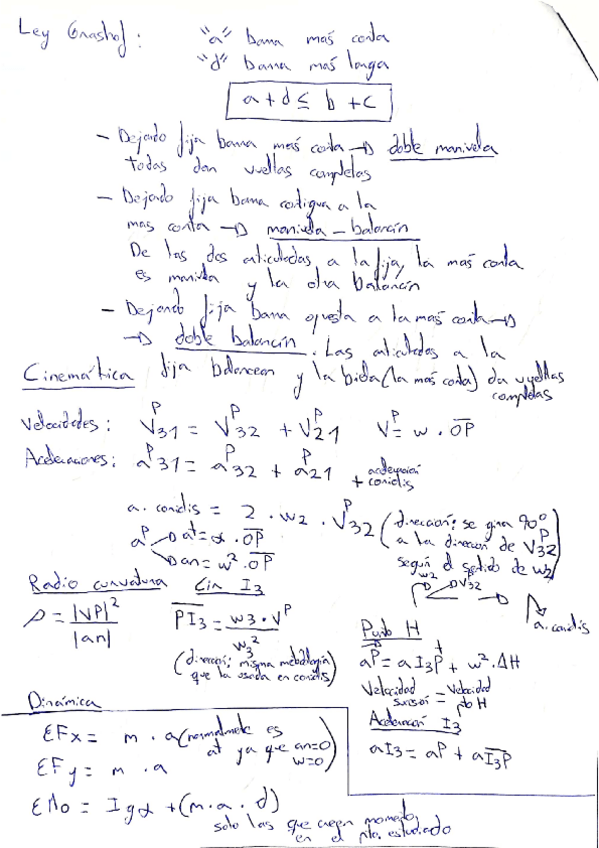 Ley Grashof: "a" barra más corta
"d" barra más larga
a + d ≤ b + c
- Dejando fija barra más corta → doble manivela
todas dan vueltas completas
- Dejando fija barra contigua a la
mas corta → manivela - balancín
De las dos articuladas a la fija, la más corta
es manivela y la otra balancín
- Dejando fija barra opuesta a la más corta →
→ doble balancín. Las articuladas a la
fija balancean y la biela (la más corta) da vueltas
completas
Cinemática
Velocidades: V^P_31 = V^P_32 + V^P_21 V^P = w · OP
Aceleraciones: a^P_31 = a^P_32 + a^P_21 + aceleración coriolis
a. coriolis = 2 · w2 · V^P_32 (dirección: se gira 90º
a la dirección de V^P_32
según el sentido de w2)
a^P → at = α · OP
→ an = w² · OP
w2 V^P_32
a. coriolis
Radio curvatura
ρ = |VP|² / |an|
Cir I3
PI3 = w3 · V^P / w3²
(dirección: misma metodología
que la usada en coriolis)
Punto H
a^P = a I3P^t + w² · ΔH
Velocidad sucesión = Velocidad pto H
Aceleración I3
aI3 = aP + aI3P
Dinámica
ΣFx = m · a (normalmente es
at ya que an=0
w=0)
ΣFy = m · a
ΣMo = Ig α + (m · a · d)
solo las que creen momento
en el pto. estudiado